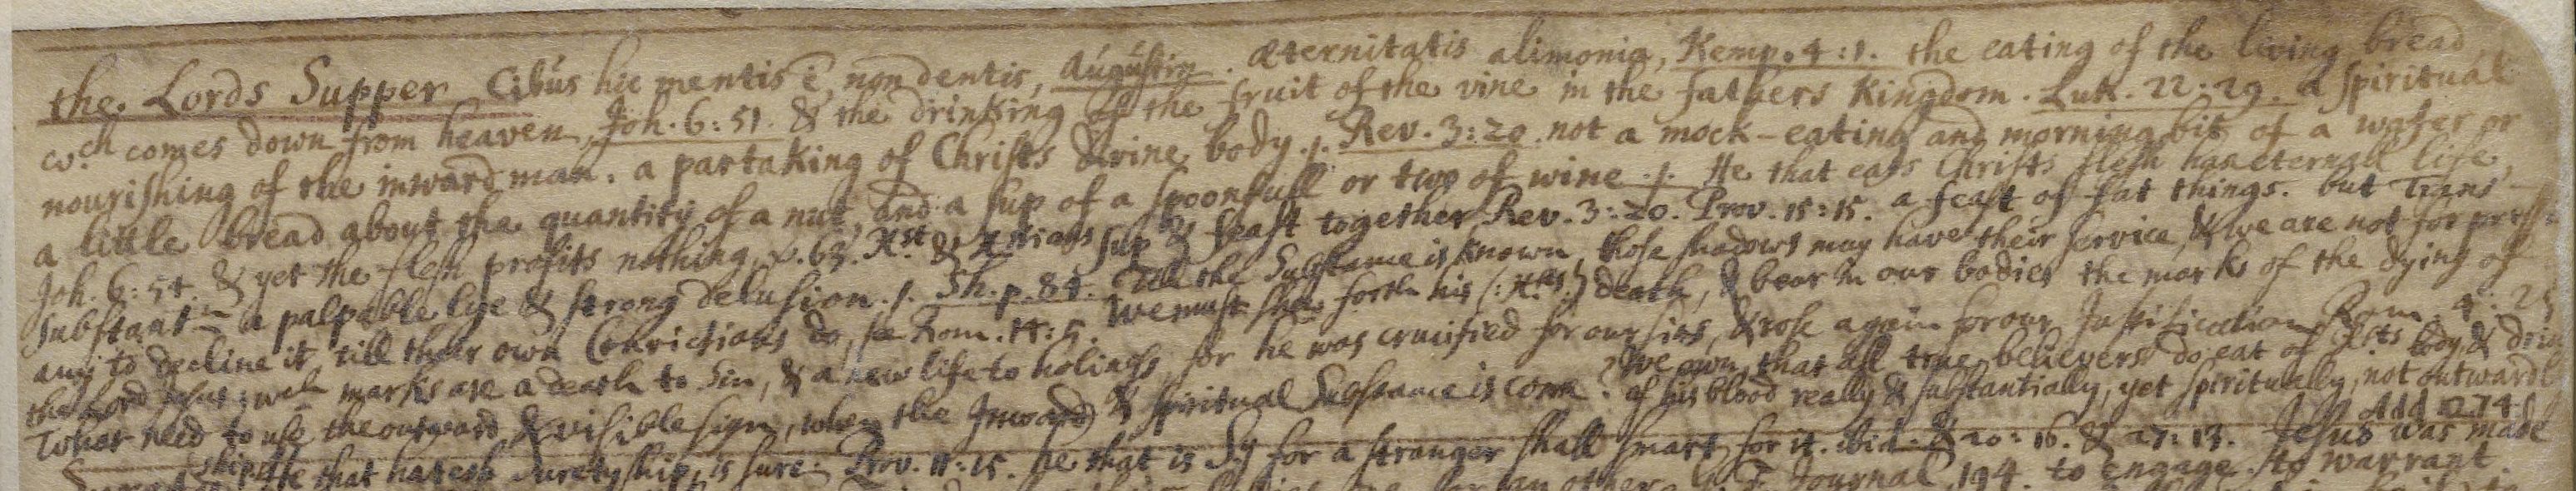 the Lords Supper Cibus hic mentis ē, non dentis, Augustin. æternitatis alimonia, Kemp. 4:1. the eating of the living bread,
wch comes down from heaven, Joh. 6:51. & the drinking of the fruit of the vine in the fathers Kingdom. Luk. 22:29. a spiritual
nourishing of the inward man: a partaking of Christs divine body. /. Rev. 3:20. not a mock-eating and morning bit of a wafer or
a little bread about the quantity of a nut, and a sup of a spoonfull or two of wine. /. He that eats Christs flesh has eternall life,
Joh. 6:54. & yet the flesh profits nothing, v. 63. Xst & Xtians sup & feast together Rev. 3:20. Prov. 15:15. a feast of fat things. but Trans-
substant:n a palpable lye & strong delusion. /. Sh. p. 84. Till the Substance is known, those shadows may have their service, & we are not for press=
any to decline it, till their own Convictions do, se Rom. 14:5. We must shew forth his (:Xts:) death, & bear in our bodies the marks of the dying of
the Lord Jesus; wch marks are a death to sin, & a new life to holiness, for he was crucified for our sins, & rose again for our Justification Rom. 4:25
What need to use the outward & visible sign, when the Inward & spiritual Substance is come? We own, that all true believers do eat of Xsts body, & drin
of his blood really & substantially, yet spiritually, not outwardl
Add 274.
ship He that hateth suretyship, is sure: Prov. 11:15. he that is Sy for a stranger shall smart for it. ibid. & 20:16. & 27:13. Jesus was made
another G. F. Journal, 194. to engage. to warrant.